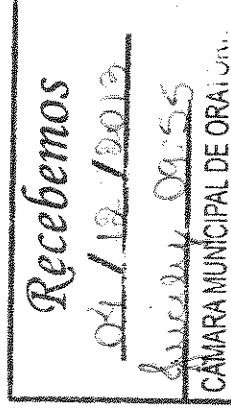 Recebemos
04/12/2012
09:55
CÂMARA MUNICIPAL DE